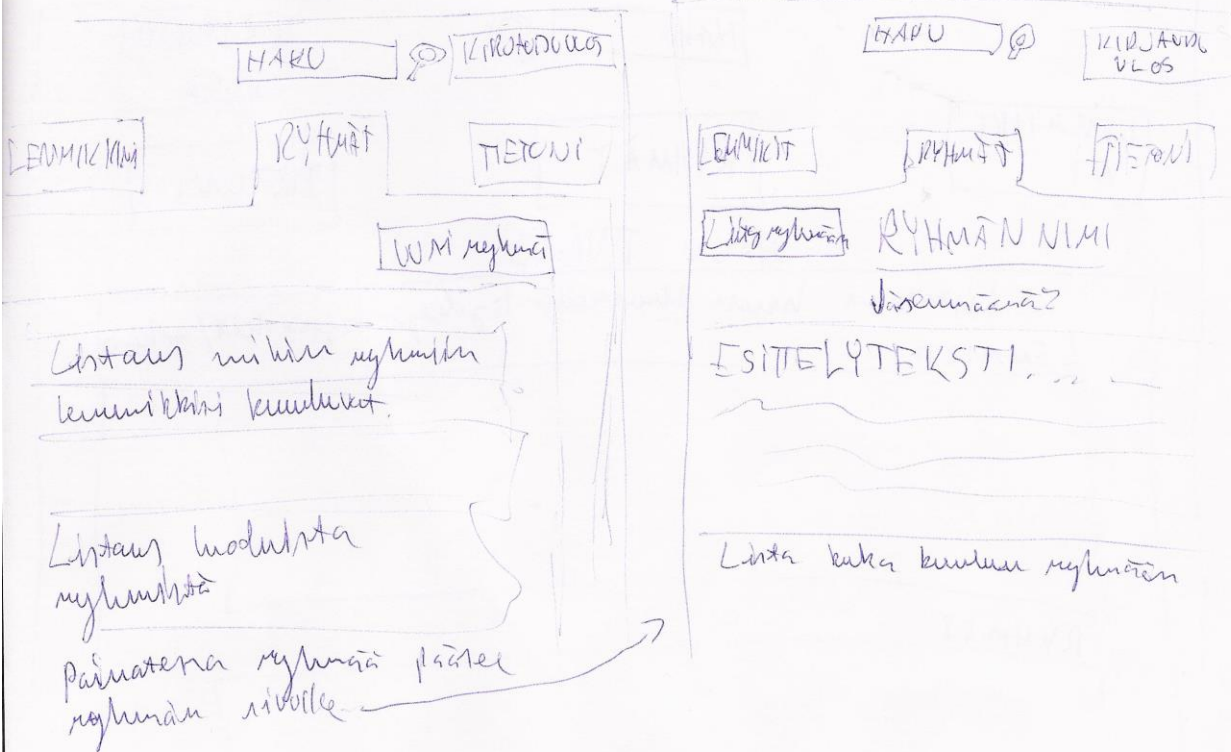 HAKU
KIRJAUDU ULOS
LEMMIKKINI
RYHMÄT
TIETONI
UUSI ryhmä
Listaus mihin ryhmiin
lemmikkini kuuluvat.
Listaus luoduista
ryhmistä
Painatessa ryhmää pääsee
ryhmän sivulle
HAKU
KIRJAUDU
ULOS
LEMMIKIT
RYHMÄT
TIETONI
Liity ryhmään
RYHMÄN NIMI
Jäsenmäärä?
ESITTELYTEKSTI....
Lista kuka kuuluu ryhmään